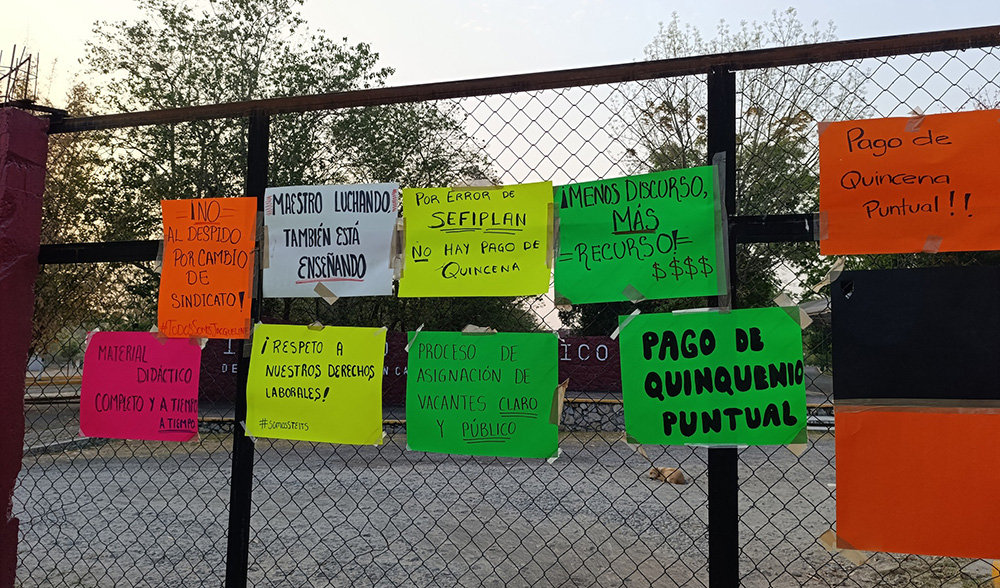 ¡NO=
AL DESPIDO
POR CAMBIO
DE
SINDICATO!
#TodosSomosJacqueline
MAESTRO LUCHANDO,
TAMBIÉN ESTÁ
ENSEÑANDO
POR ERROR DE
SEFIPLAN
NO HAY PAGO DE
QUINCENA
¡MENOS DISCURSO,
MÁS
=RECURSO!=
$$$$
Pago de
Quincena
Puntual!!
MATERIAL
DIDÁCTICO
COMPLETO Y A TIEMPO
A TIEMPO
¡RESPETO A
NUESTROS DERECHOS
LABORALES!
#SOMOSSTEITS
PROCESO DE
ASIGNACIÓN DE
VACANTES CLARO
Y PÚBLICO
PAGO DE
QUINQUENIO
PUNTUAL